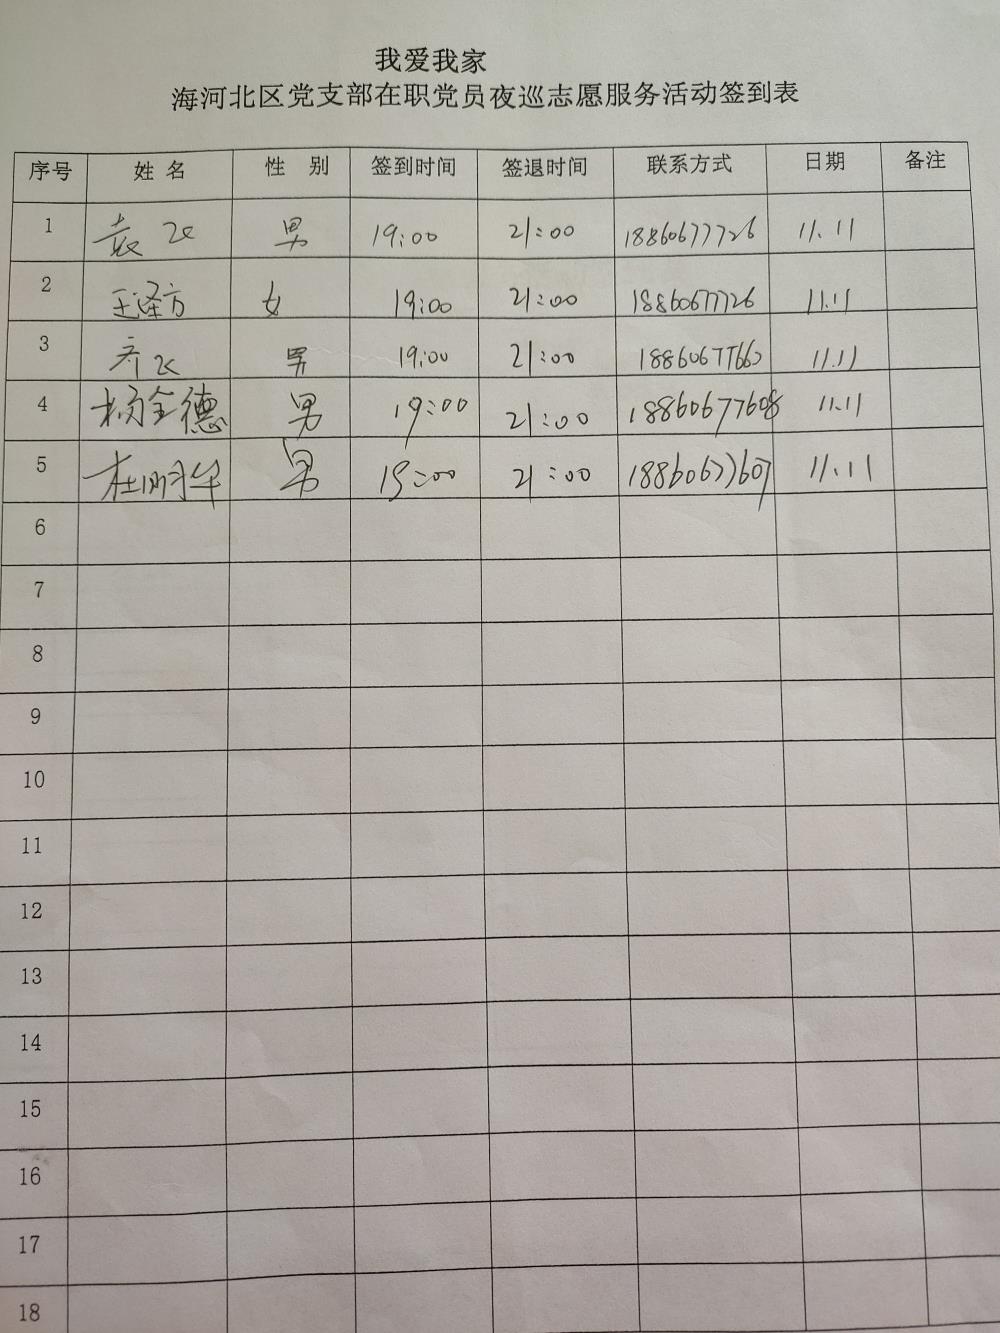 我爱我家
海河北区党支部在职党员夜巡志愿服务活动签到表
序号 姓名 性别 签到时间 签退时间 联系方式 日期 备注
1 袁飞 男 19:00 21:00 18860677726 11.11
2 王泽方 女 19:00 21:00 1886067726 11.11
3 齐飞 男 19:00 21:00 11.11
4 杨全德 男 19:00 21:00 18860677608 11.11
5 杜明华 男 19:00 21:00 18860677607 11.11
6
7
8
9
10
11
12
13
14
15
16
17
18